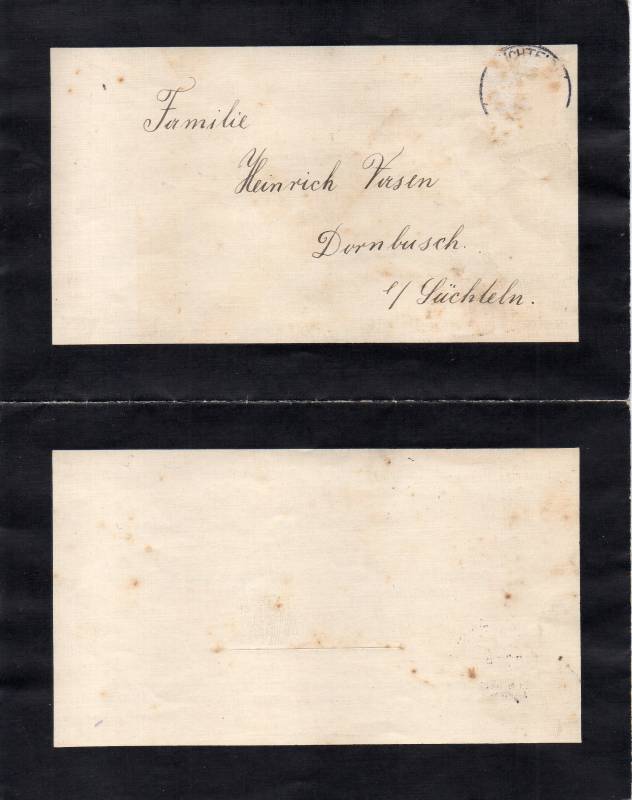 Familie
Heinrich Vasen
Dornbusch.
b/ Süchteln.